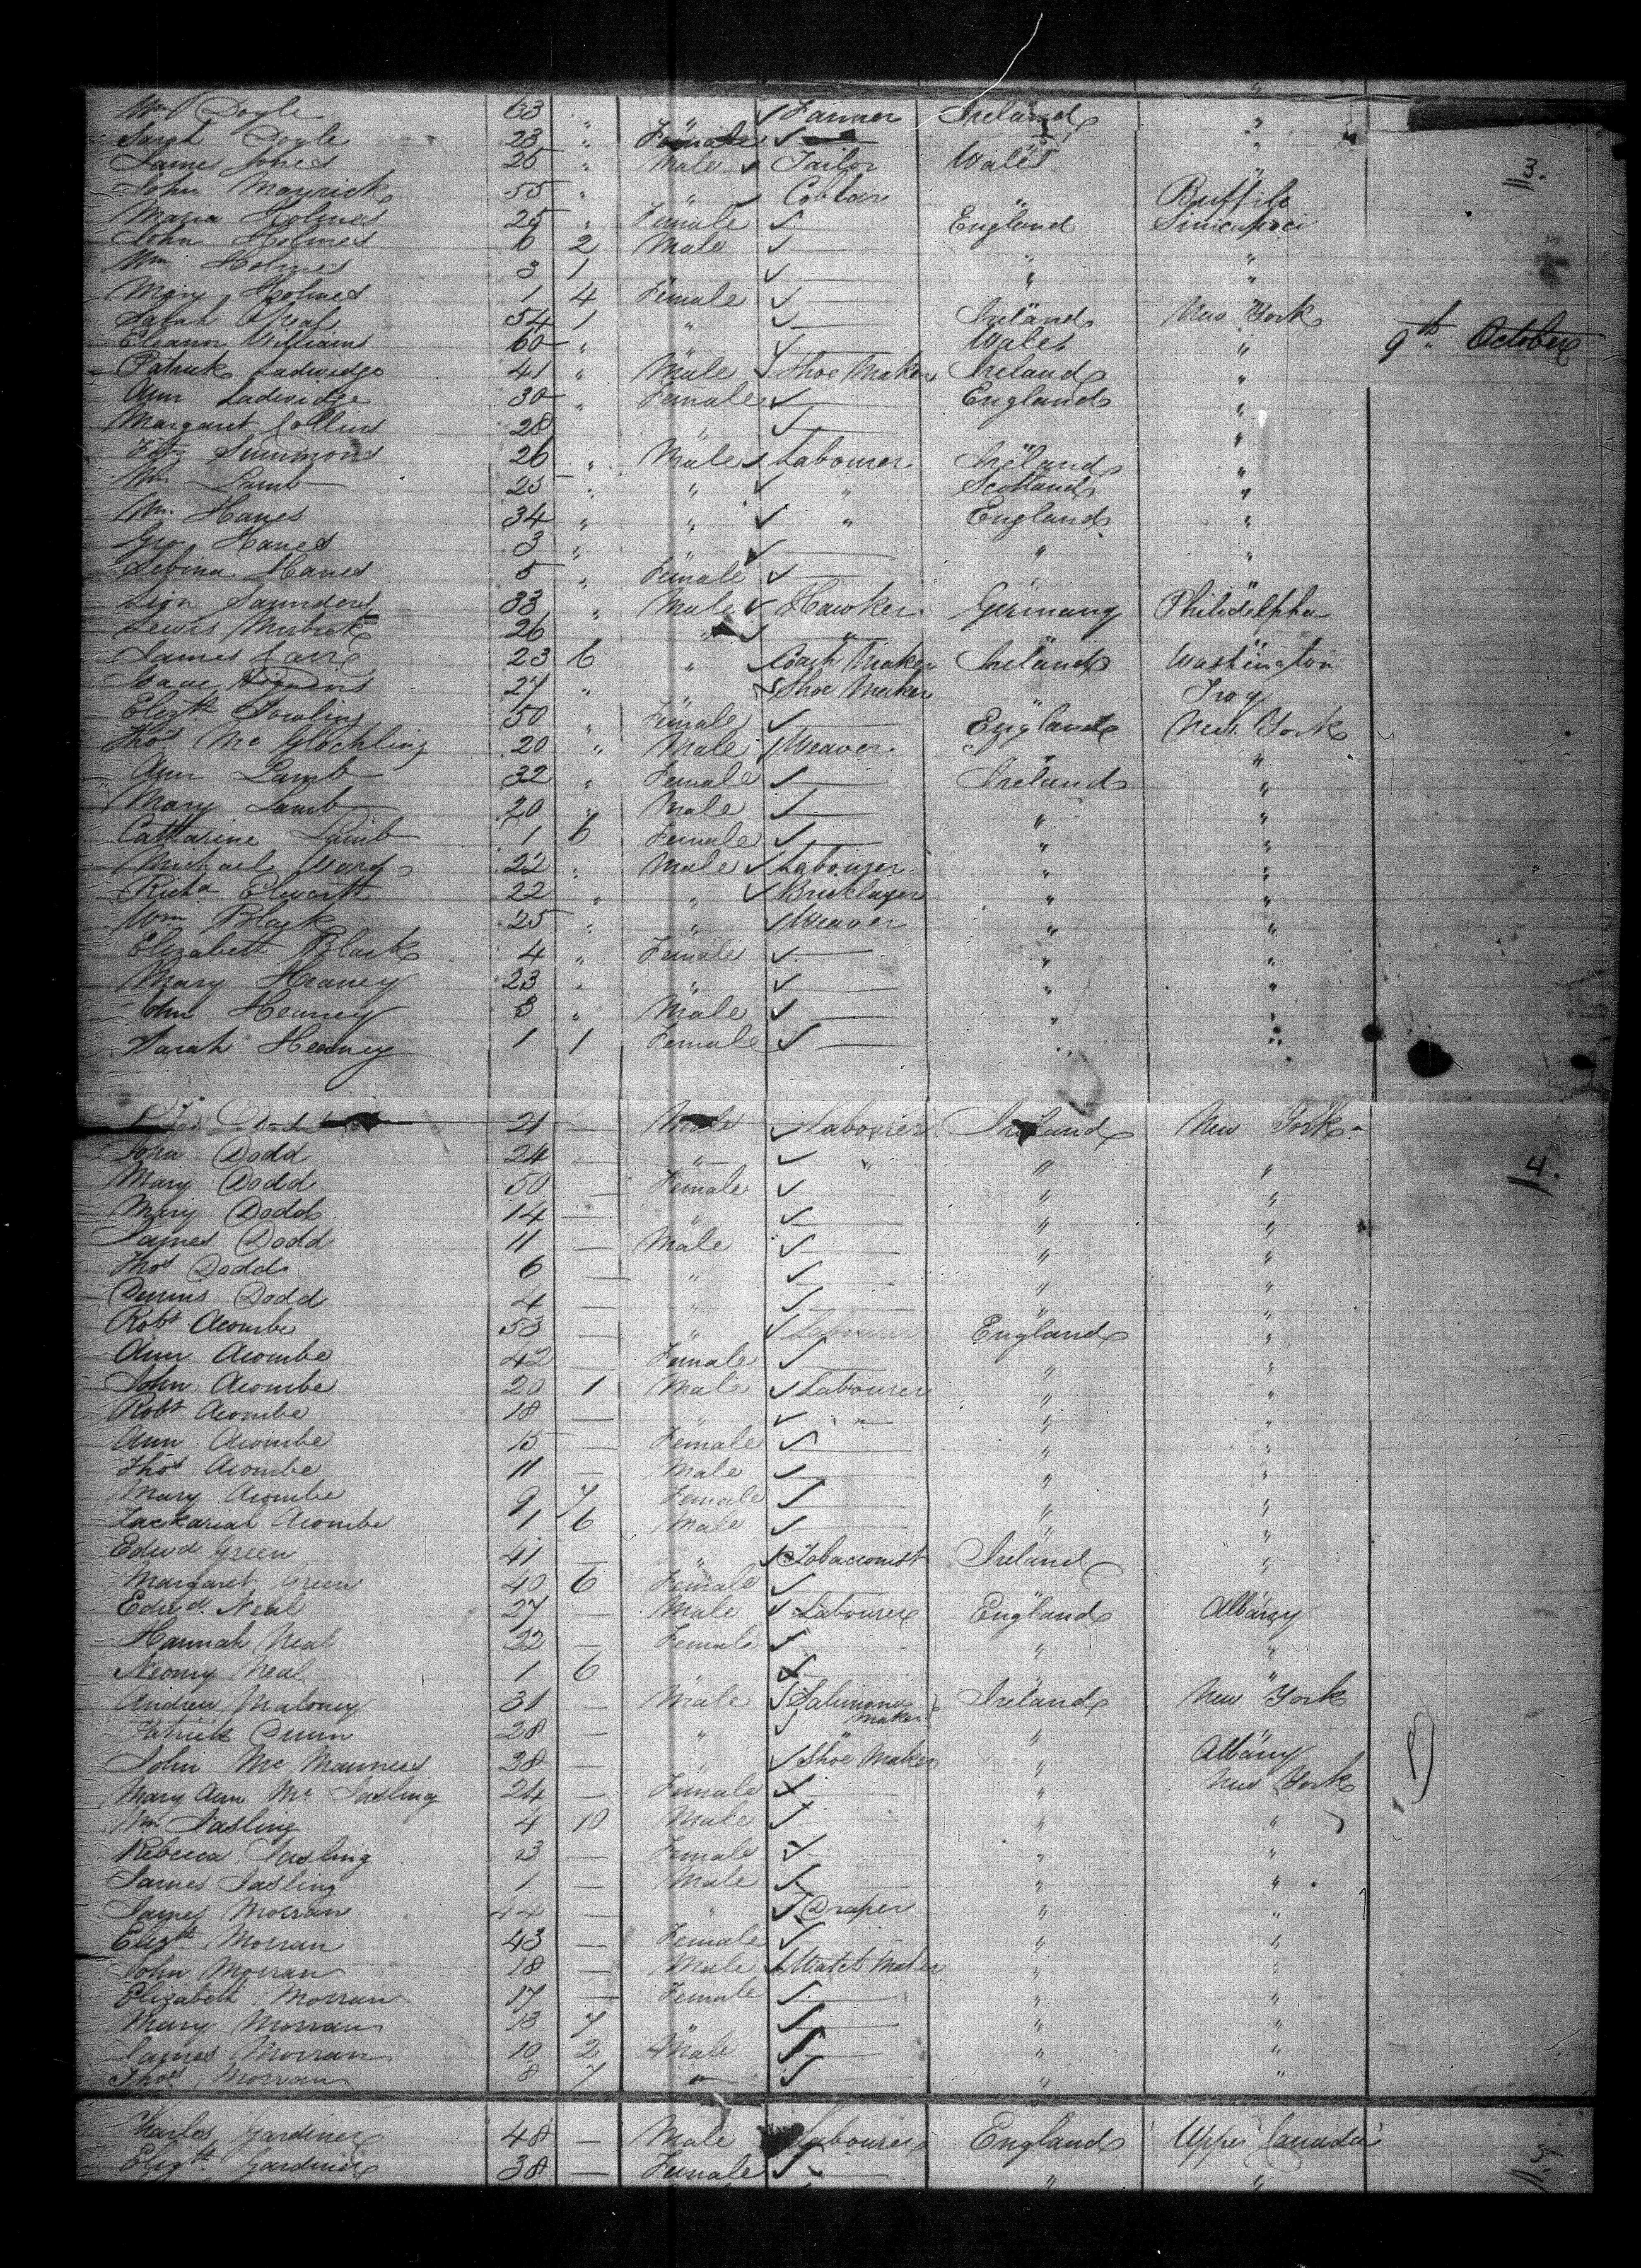 Wm Doyle 33 " " Farmer Ireland "
Sarah Doyle 23 " Female "
James Jones 25 " Male Tailor Wales "
John Mayrick 55 " " Cobblar " Buffilo
Maria Holmes 25 " Female England
John Holmes 6 2 Male " "
Wm Holmes 3 1 " " "
Mary Holmes 1 4 Female " "
Sarah Oneal 54 1 " Ireland New York
Eleanor Williams 60 " " Wales "
9th October
Patrick Ladwidge 41 " Male Shoe Maker Ireland "
Ann Ladwidge 30 " Female England "
Margaret Collins 28 " " "
Fitz Simmons 26 " Male Labourer Ireland "
Wm Lamb 25 " " " Scotland "
Wm Hanes 34 " " " England "
Geo Hanes 3 " " " "
Sebina Hanes 5 " Female " "
Lion Saunders 33 " Male Hawker Germany Philidelpha
Lewis 26 " " " " "
James Carr 23 6 " Coach Maker Ireland Washington
Isaac 27 " " Shoe Maker " Troy
Elizth Dowling 50 " Female England New York
Thos Mc Glochling 20 " Male Weaver " "
Ann Lamb 32 " Female Ireland "
Mary Lamb 20 " Male " "
Catharine Lamb 1 6 Female " "
Michael Ward 22 " Male Labourer " "
Richd Elworth 22 " " Bricklayer " "
Wm Black 25 " " Weaver " "
Elizabeth Black 4 " Female " "
Mary Heaney 23 " " " "
John Heaney 3 " Male " "
Sarah Heaney 1 1 Female " "
3.
21 — Male Labourer Ireland New York
4.
John Dodd 24 — " " " "
Mary Dodd 50 — Female " "
Mary Dodd 14 — " " "
James Dodd 11 — Male " "
Thos Dodd 6 — " " "
Dennis Dodd 4 — " " "
Robt Acombe 53 — " Labourer England "
Ann Acombe 42 — Female " "
John Acombe 20 1 Male Labourer " "
Robt Acombe 18 — " " " "
Ann Acombe 15 — Female " "
Thos Acombe 11 — Male " "
Mary Acombe 9 7 Female " "
Zackariah Acombe 1 6 Male " "
Edwd Green 41 — " Tobacconist Ireland "
Margaret Green 40 6 Female " "
Edwd Neal 27 — Male Labourer England Albany
Hannah Neal 22 — Female " "
Neomy Neal 1 6 " " "
Andrew Maloney 31 — Male Maker Ireland New York
Patrick Dunn 28 — " " " "
John Mc Manners 38 — " Shoe Maker " Albany
Mary Ann Mc Sasling 24 — Female " New York
Wm Sasling 4 10 Male " "
Rebecca Sasling 3 — Female " "
James Sasling 1 — Male " "
James Morran 44 — " Draper " "
Elizth Morran 43 — Female " "
John Morran 18 — Male Watch Maker " "
Elizabeth Morran 17 — Female " "
Mary Morran 13 7 " " "
James Morran 10 2 Male " "
Thos Morran 8 7 " " "
Charles Gardiner 48 — Male Labourer England Upper Canada
Elizth Gardiner 38 — Female " "
5.